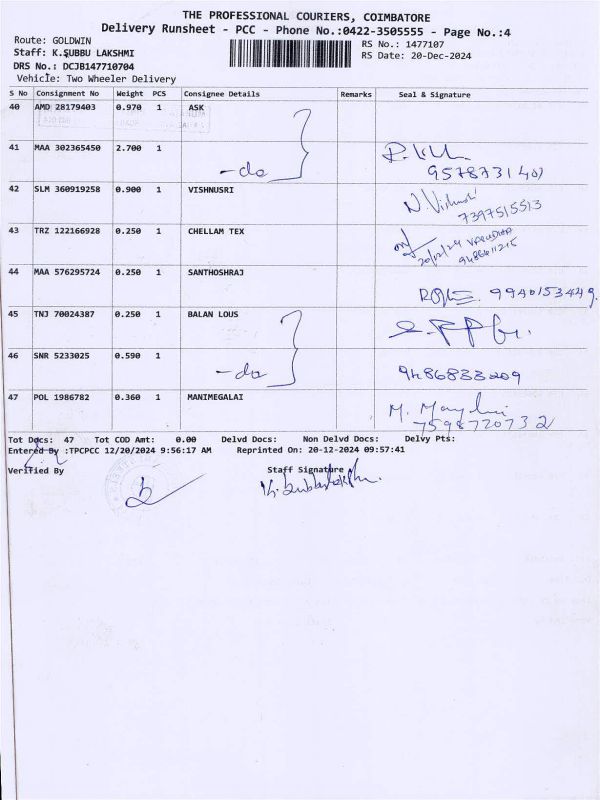 THE PROFESSIONAL COURIERS, COIMBATORE
Delivery Runsheet - PCC - Phone No.:0422-3505555 - Page No.:4
Route: GOLDWIN
RS No.: 1477107
Staff: K.SUBBU LAKSHMI
RS Date: 20-Dec-2024
DRS No.: DCJB147710704
Vehicle: Two Wheeler Delivery
S No Consignment No Weight PCS Consignee Details Remarks Seal & Signature
40 AMD 28179403 0.970 1 ASK
41 MAA 302365450 2.700 1
-do
42 SLM 360919258 0.900 1 VISHNUSRI
7397515513
43 TRZ 122166928 0.250 1 CHELLAM TEX
20/12/24
9486611215
44 MAA 576295724 0.250 1 SANTHOSHRAJ
9940153449
45 TNJ 70024387 0.250 1 BALAN LOUS
46 SNR 5233025 0.590 1
-do 9486833209
47 POL 1986782 0.360 1 MANIMEGALAI
7598720732
Tot Docs: 47 Tot COD Amt: 0.00 Delvd Docs: Non Delvd Docs: Delvy Pts:
Entered By :TPCPCC 12/20/2024 9:56:17 AM Reprinted On: 20-12-2024 09:57:41
Verified By Staff Signature